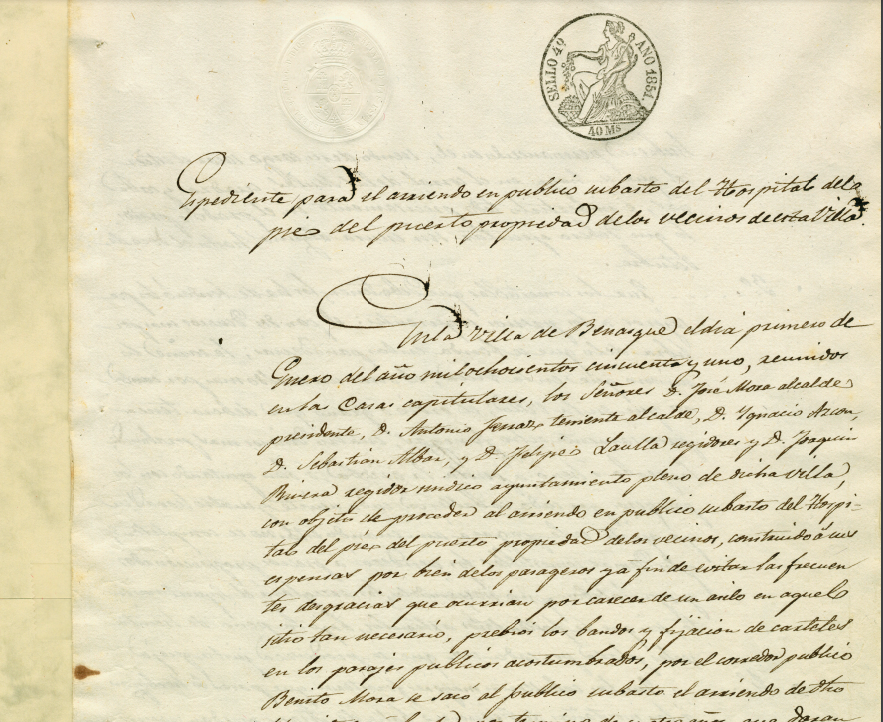 SELLO 4º AÑO 1851.
40 Ms
Espediente para el arriendo en publico subasto del Hospital del
pie del puerto propiedad de los vecinos de esta Villa.
En la Villa de Benasque el dia primero de
Enero del año mil ochocientos cincuenta y uno, reunidos
en las Casas capitulares, los Señores D. José Mora alcalde
presidente, D. Antonio Ferraz teniente alcalde, D. Ignacio Azcon,
D. Sebastian Albar, y D. Felipe Laulla regidores y D. Joaquin
Rivera regidor sindico ayuntamiento pleno de dicha villa,
con objeto de proceder al arriendo en publico subasto del Hospi-
tal del pie del puerto propiedad de los vecinos, construido á sus
espensas por bien de los parageros y á fin de evitar las frecuen
tes desgracias que ocurrian por carecer de un asilo en aquel
sitio tan necesario, prebios los bandos y fijacion de carteles
en los parajes publicos acostumbrados, por el corredor publico
Benito Mora se sacó al publico subasto el arriendo de dho
por termino de cuatro años, que daran